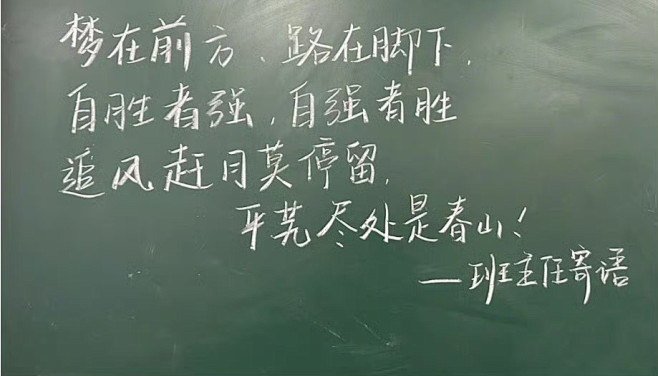 梦在前方、路在脚下,
自胜者强,自强者胜
追风赶月莫停留,
平芜尽处是春山!
—班主任寄语